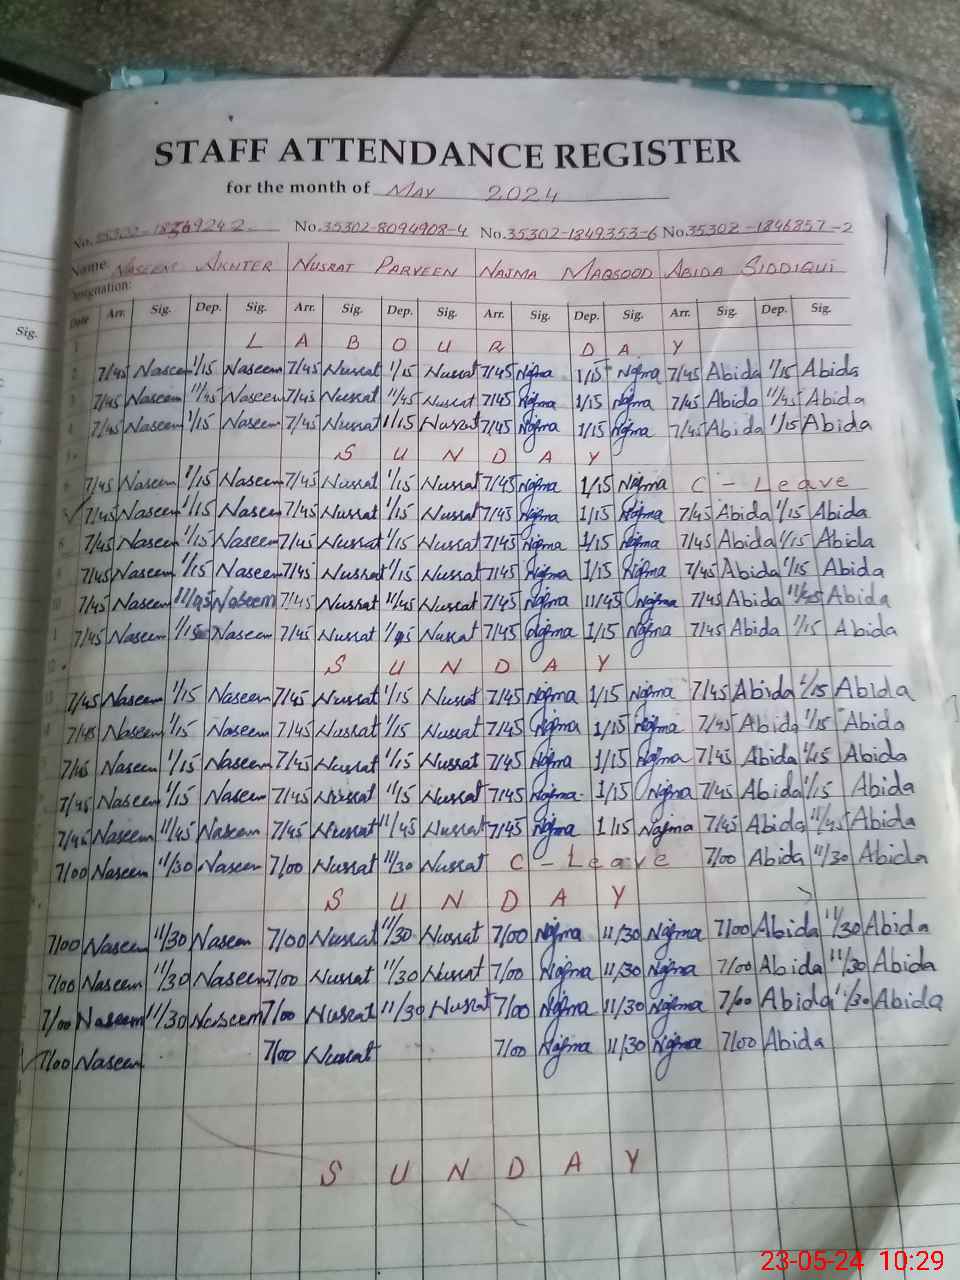 STAFF ATTENDANCE REGISTER
for the month of May 2024
No. 35302-1836924 2 No. 35302-8094908-4 No. 35302-1849353-6 No. 35302-1846857-2
Name. NASEEM AKHTER NUSRAT PARVEEN NAJMA MAQSOOD ABIDA SIDDIQUI
Designation:
Sig.
Date Arr. Sig. Dep. Sig. Arr. Sig. Dep. Sig. Arr. Sig. Dep. Sig. Arr. Sig. Dep. Sig.
1 L A B O U R D A Y
2 7/45 Naseem 1/15 Naseem 7/45 Nusrat 1/15 Nusrat 7/45 Najma 1/15 Najma 7/45 Abida 1/15 Abida
3 7/45 Naseem 11/45 Naseem 7/45 Nusrat 11/45 Nusrat 7/45 Najma 1/15 Najma 7/45 Abida 11/45 Abida
4 7/45 Naseem 1/15 Naseem 7/45 Nusrat 1/15 Nusrat 7/45 Najma 1/15 Najma 7/45 Abida 1/15 Abida
5 S U N D A Y
6 7/45 Naseem 1/15 Naseem 7/45 Nusrat 1/15 Nusrat 7/45 Najma 1/15 Najma C - Leave
7/45 Naseem 1/15 Naseem 7/45 Nusrat 1/15 Nusrat 7/45 Najma 1/15 Najma 7/45 Abida 1/15 Abida
8 7/45 Naseem 1/15 Naseem 7/45 Nusrat 1/15 Nusrat 7/45 Najma 1/15 Najma 7/45 Abida 1/15 Abida
7/45 Naseem 1/15 Naseem 7/45 Nusrat 1/15 Nusrat 7/45 Najma 1/15 Najma 7/45 Abida 1/15 Abida
10 7/45 Naseem 11/45 Naseem 7/45 Nusrat 11/45 Nusrat 7/45 Najma 11/45 Najma 7/45 Abida 11/45 Abida
7/45 Naseem 1/15 Naseem 7/45 Nusrat 1/15 Nusrat 7/45 Najma 1/15 Najma 7/45 Abida 1/15 Abida
12 S U N D A Y
13 7/45 Naseem 1/15 Naseem 7/45 Nusrat 1/15 Nusrat 7/45 Najma 1/15 Najma 7/45 Abida 1/15 Abida
7/45 Naseem 1/15 Naseem 7/45 Nusrat 1/15 Nusrat 7/45 Najma 1/15 Najma 7/45 Abida 1/15 Abida
7/45 Naseem 1/15 Naseem 7/45 Nusrat 1/15 Nusrat 7/45 Najma 1/15 Najma 7/45 Abida 1/15 Abida
7/45 Naseem 1/15 Naseem 7/45 Nusrat 1/15 Nusrat 7/45 Najma 1/15 Najma 7/45 Abida 1/15 Abida
7/45 Naseem 11/45 Naseem 7/45 Nusrat 11/45 Nusrat 7/45 Najma 1/15 Najma 7/45 Abida 11/45 Abida
7/00 Naseem 11/30 Naseem 7/00 Nusrat 11/30 Nusrat C - Leave 7/00 Abida 11/30 Abida
S U N D A Y
7/00 Naseem 11/30 Naseem 7/00 Nusrat 11/30 Nusrat 7/00 Najma 11/30 Najma 7/00 Abida 11/30 Abida
7/00 Naseem 11/30 Naseem 7/00 Nusrat 11/30 Nusrat 7/00 Najma 11/30 Najma 7/00 Abida 11/30 Abida
7/00 Naseem 11/30 Naseem 7/00 Nusrat 11/30 Nusrat 7/00 Najma 11/30 Najma 7/00 Abida 11/30 Abida
7/00 Naseem 7/00 Nusrat 7/00 Najma 11/30 Najma 7/00 Abida
S U N D A Y
23-05-24 10:29